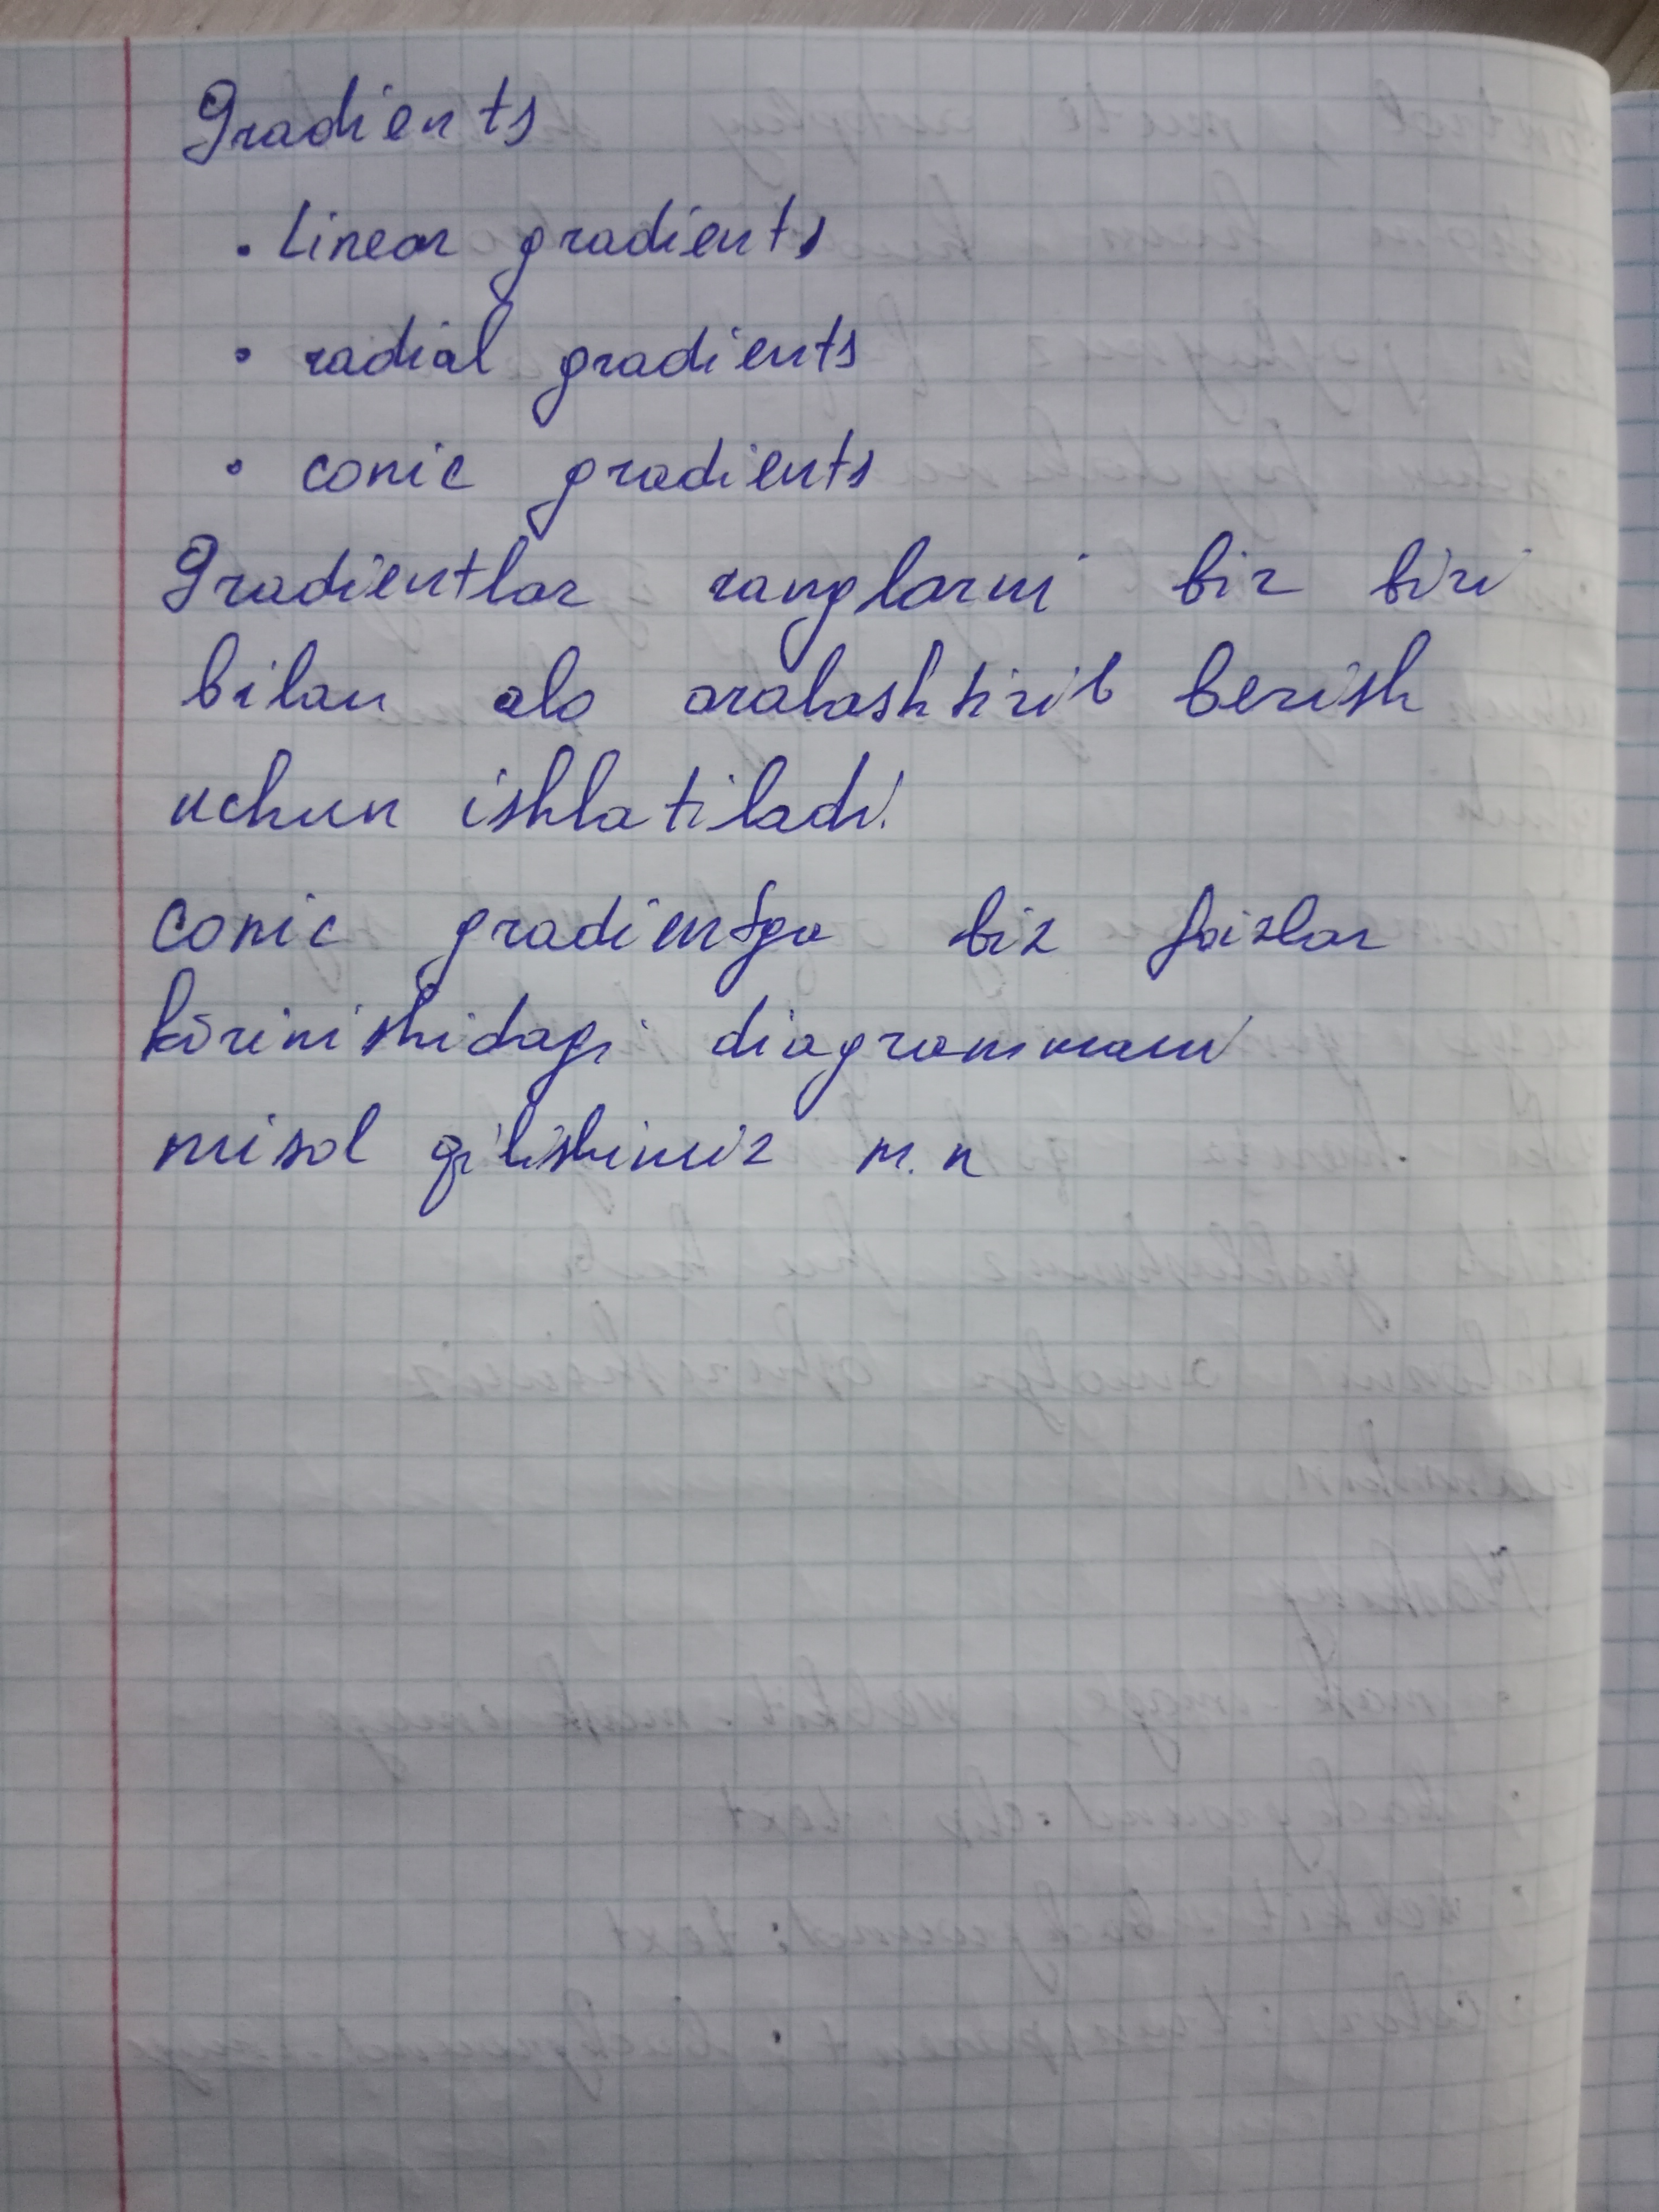 Gradients
• Linear gradients
• radial gradients
• conic gradients
Gradientlar ranglarni bir biri
bilan ala aralashtirib berish
uchun ishlatiladi.
Conic gradientga biz foizlar
kōrinishidagi diagrammani
misol qilishimiz m.n